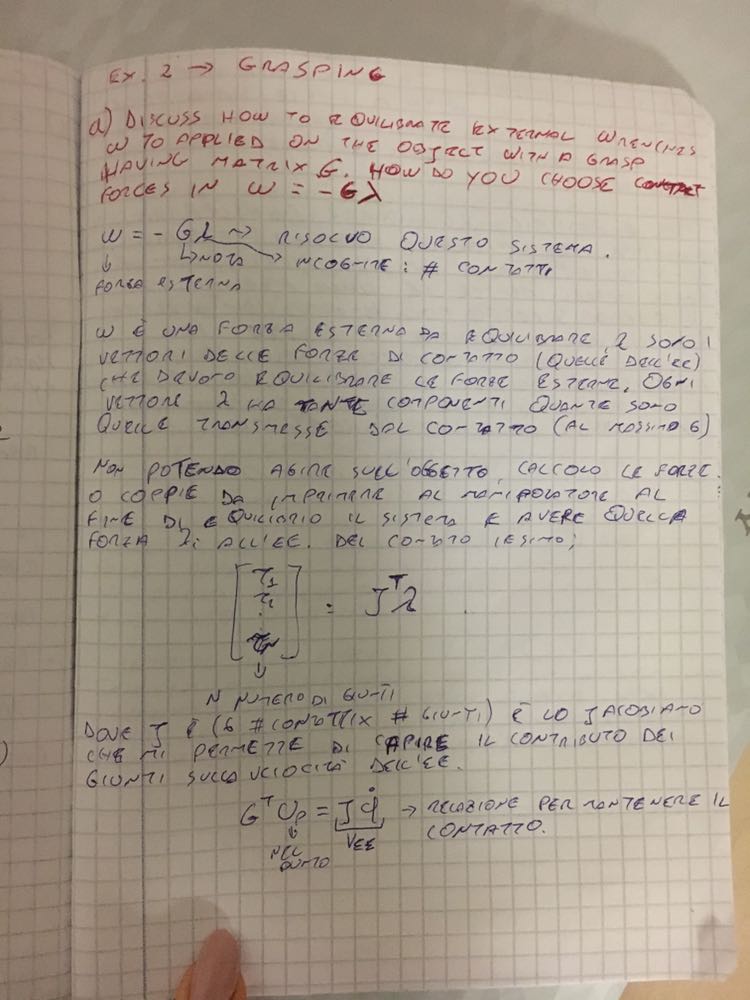 EX. 2 → GRASPING
a) DISCUSS HOW TO EQUILIBRATE EXTERNAL WRENCHES
W TO APPLIED ON THE OBJECT WITH A GRASP
HAVING MATRIX G. HOW DO YOU CHOOSE CONTACT
FORCES IN W = -Gλ
W = -Gλ → RISOLVO QUESTO SISTEMA.
↓ ↳NOTA → INCOGNITE: # CONTATTI
FORZA ESTERNA
W È UNA FORZA ESTERNA DA EQUILIBRARE, λ SONO I
VETTORI DELLE FORZE DI CONTATTO (QUELLE DELL'EE)
CHE DEVONO EQUILIBRARE LE FORZE ESTERNE, OGNI
VETTORE λ HA TANTE COMPONENTI QUANTE SONO
QUELLE TRASMESSE DAL CONTATTO (AL MASSIMO 6)
NON POTENDO AGIRE SULL'OGGETTO, CALCOLO LE FORZE
O COPPIE DA IMPRIMERE AL MANIPOLATORE AL
FINE DI EQUILIBRIO IL SISTEMA E AVERE QUELLA
FORZA λi ALL'EE. DEL CONTATTO IESIMO;
[τ1 τ2 . . τN] = J^T λ
↓
N NUMERO DI GIUNTI
DOVE J È (6 #CONTATTI X # GIUNTI) È LO JACOBIANO
CHE MI PERMETTE DI CAPIRE IL CONTRIBUTO DEI
GIUNTI SULLA VELOCITÀ DELL'EE.
G^T Up = J q̇ → RELAZIONE PER MANTENERE IL
↓ VEE CONTATTO.
NEL
PUNTO